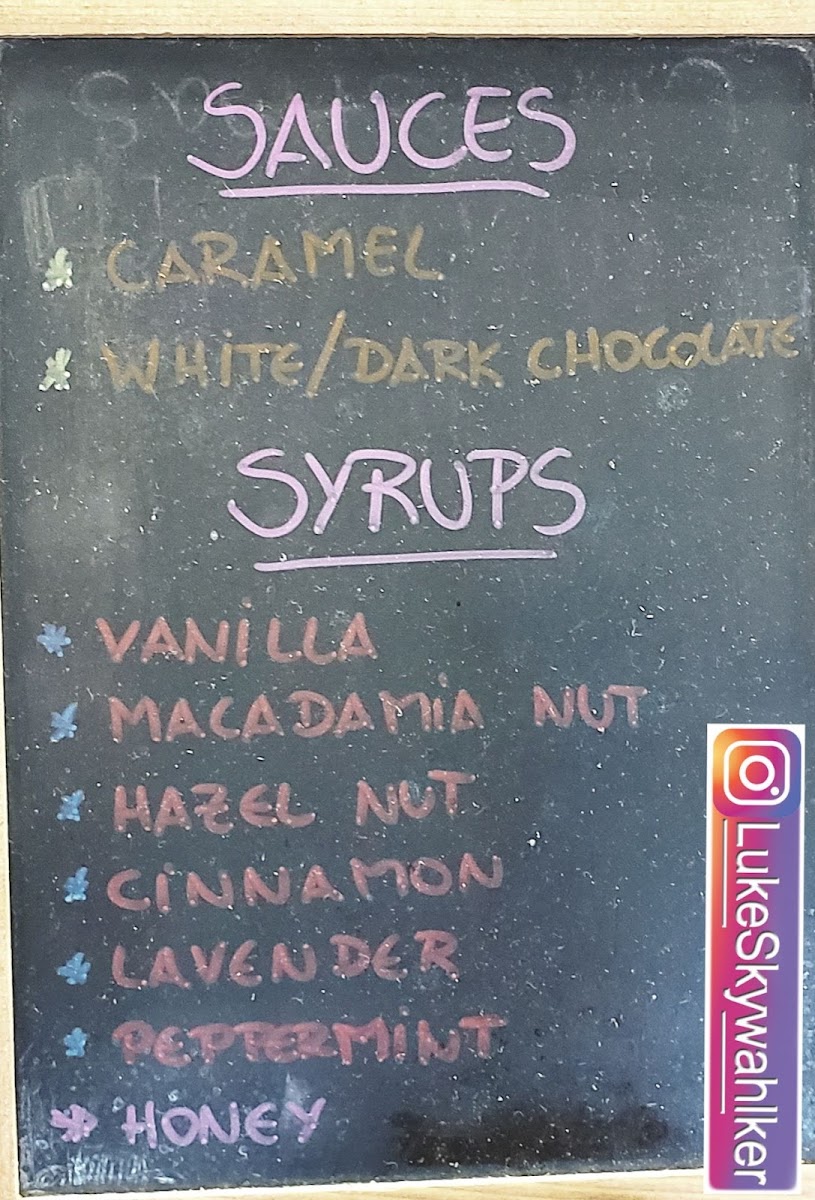 SAUCES
* CARAMEL
* WHITE/DARK CHOCOLATE
SYRUPS
* VANILLA
* MACADAMIA NUT
* HAZEL NUT
* CINNAMON
* LAVENDER
* PEPPERMINT
* HONEY
LukeSkywahlker